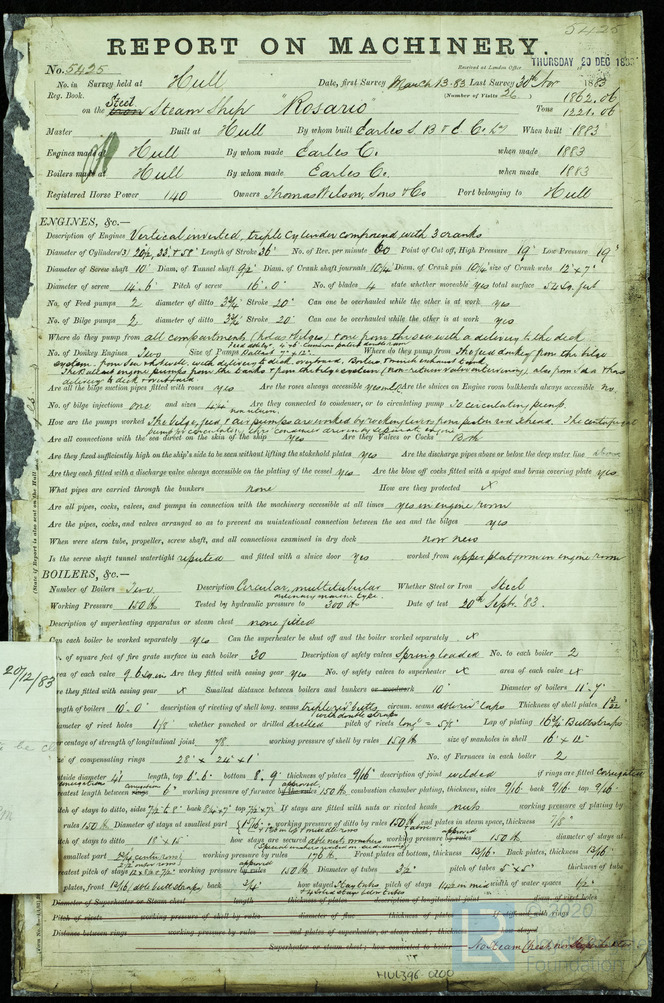 5425
REPORT ON MACHINERY.
No. 5425 Received at London Office THURSDAY 20 DEC 1883
No. in Survey held at Hull Date, first Survey March 13-83 Last Survey 30th Nov 1883
Reg. Book. (Number of Visits 26)
on the Steel Steam Ship "Rosario" Tons 1862.06 1221.06
Master Built at Hull By whom built Earles S. B & E. Co. Ld When built 1883
Engines made at Hull By whom made Earles Co. when made 1883
Boilers made at Hull By whom made Earles Co. when made 1883
Registered Horse Power 140 Owners Thomas Wilson, Sons & Co Port belonging to Hull
ENGINES, &c.—
Description of Engines Vertical inverted, triple cylinder compound with 3 cranks
Diameter of Cylinders Length of Stroke 36" No. of Rev. per minute 60 Point of Cut off, High Pressure 19" Low Pressure 19"
Diameter of Screw shaft 10" Diam. of Tunnel shaft 9½" Diam. of Crank shaft journals 10¼ Diam. of Crank pin 10¼ size of Crank webs 12" x 7"
Diameter of screw 14'.6" Pitch of screw 16'.0" No. of blades 4 state whether moveable yes total surface 54 Sq. feet
No. of Feed pumps 2 diameter of ditto 3¾" Stroke 20" Can one be overhauled while the other is at work yes
No. of Bilge pumps 2 diameter of ditto 3¾" Stroke 20" Can one be overhauled while the other is at work yes
Where do they pump from all compartments (holds & bilges) & one from the sea with a delivery to the deck
No. of Donkey Engines Two Size of Pumps Ballast 7" x 12" Where do they pump from The feed donkey from the bilge
Are all the bilge suction pipes fitted with roses yes Are the roses always accessible yes Are the sluices on Engine room bulkheads always accessible no.
No. of bilge injections one and sizes 4¼" Are they connected to condenser, or to circulating pump To circulating pump.
How are the pumps worked The bilge, feed & air pumps are worked by rocking levers from piston rod Xhead. The centrifugal
pump for circulating thro' condenser driven by separate engine
Are all connections with the sea direct on the skin of the ship yes Are they Valves or Cocks Both
Are they fixed sufficiently high on the ship's side to be seen without lifting the stokehold plates yes Are the discharge pipes above or below the deep water line above
Are they each fitted with a discharge valve always accessible on the plating of the vessel yes Are the blow off cocks fitted with a spigot and brass covering plate yes
What pipes are carried through the bunkers none How are they protected x
Are all pipes, cocks, valves, and pumps in connection with the machinery accessible at all times yes in engine room
Are the pipes, cocks, and valves arranged so as to prevent an unintentional connection between the sea and the bilges yes
When were stern tube, propeller, screw shaft, and all connections examined in dry dock now new
Is the screw shaft tunnel watertight reputed and fitted with a sluice door yes worked from upper platform in engine room
BOILERS, &c.—
Number of Boilers Two Description Circular, multitubular ordinary marine type. Whether Steel or Iron Steel
Working Pressure 150 lb Tested by hydraulic pressure to 300 lb Date of test 20th Septr. '83.
Description of superheating apparatus or steam chest none fitted
Can each boiler be worked separately yes Can the superheater be shut off and the boiler worked separately x
No. of square feet of fire grate surface in each boiler 30 Description of safety valves Spring loaded No. to each boiler 2
area of each valve 9.6 sq. in Are they fitted with easing gear yes No. of safety valves to superheater x area of each valve x
are they fitted with easing gear x Smallest distance between boilers and bunkers or woodwork 10" Diameter of boilers 11'.7"
length of boilers 10'.0" description of riveting of shell long. seams triple riv'd butts with double straps circum. seams double riv'd laps Thickness of shell plates
diameter of rivet holes 1 1/8 whether punched or drilled drilled pitch of rivets Lap of plating
per centage of strength of longitudinal joint 78 working pressure of shell by rules 159 lb size of manholes in shell 16" x 12"
size of compensating rings 28" x 24" x 1" No. of Furnaces in each boiler 2
outside diameter 41 length, top 6'.6" bottom 8'.9" thickness of plates 9/16" description of joint welded if rings are fitted corrugated
greatest length between 6" working pressure of furnace 150 lb combustion chamber plating, thickness, sides 9/16 back 9/16 top 9/16"
pitch of stays to ditto, sides back top If stays are fitted with nuts or riveted heads nuts working pressure of plating by
rules 150 lb Diameter of stays at smallest part working pressure of ditto by rules 150 lb end plates in steam space, thickness 7/8"
pitch of stays to ditto 18" x 15" how stays are secured working pressure by rules 150 lb diameter of stays at
smallest part working pressure by rules 176 lb Front plates at bottom, thickness 13/16 Back plates, thickness 13/16"
greatest pitch of stays working pressure by rules 150 lb Diameter of tubes 3½" pitch of tubes 5" x 5" thickness of tube
plates, front back ¾" how stayed Stay tubes pitch of stays width of water spaces
Diameter of Superheater or Steam chest length thickness of plates description of longitudinal joint diam. of rivet holes
Pitch of rivets working pressure of shell by rules diameter of flue thickness of plates If stiffened with rings
Distance between rings working pressure by rules end plates of superheater, or steam chest; thickness how stayed
Superheater or steam chest; how connected to boiler No steam chest nor superheater
20/12/83
HUL396-0200
© 2020
LR
Foundation